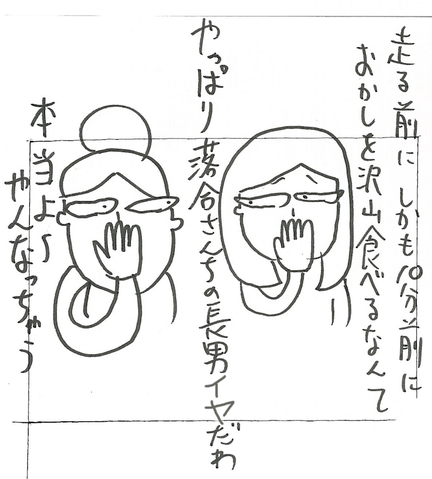 走る前に しかも10分前に
おかしを沢山食べるなんて
やっぱり落合さんちの長男イヤだわ
本当よ〜
やんなっちゃう